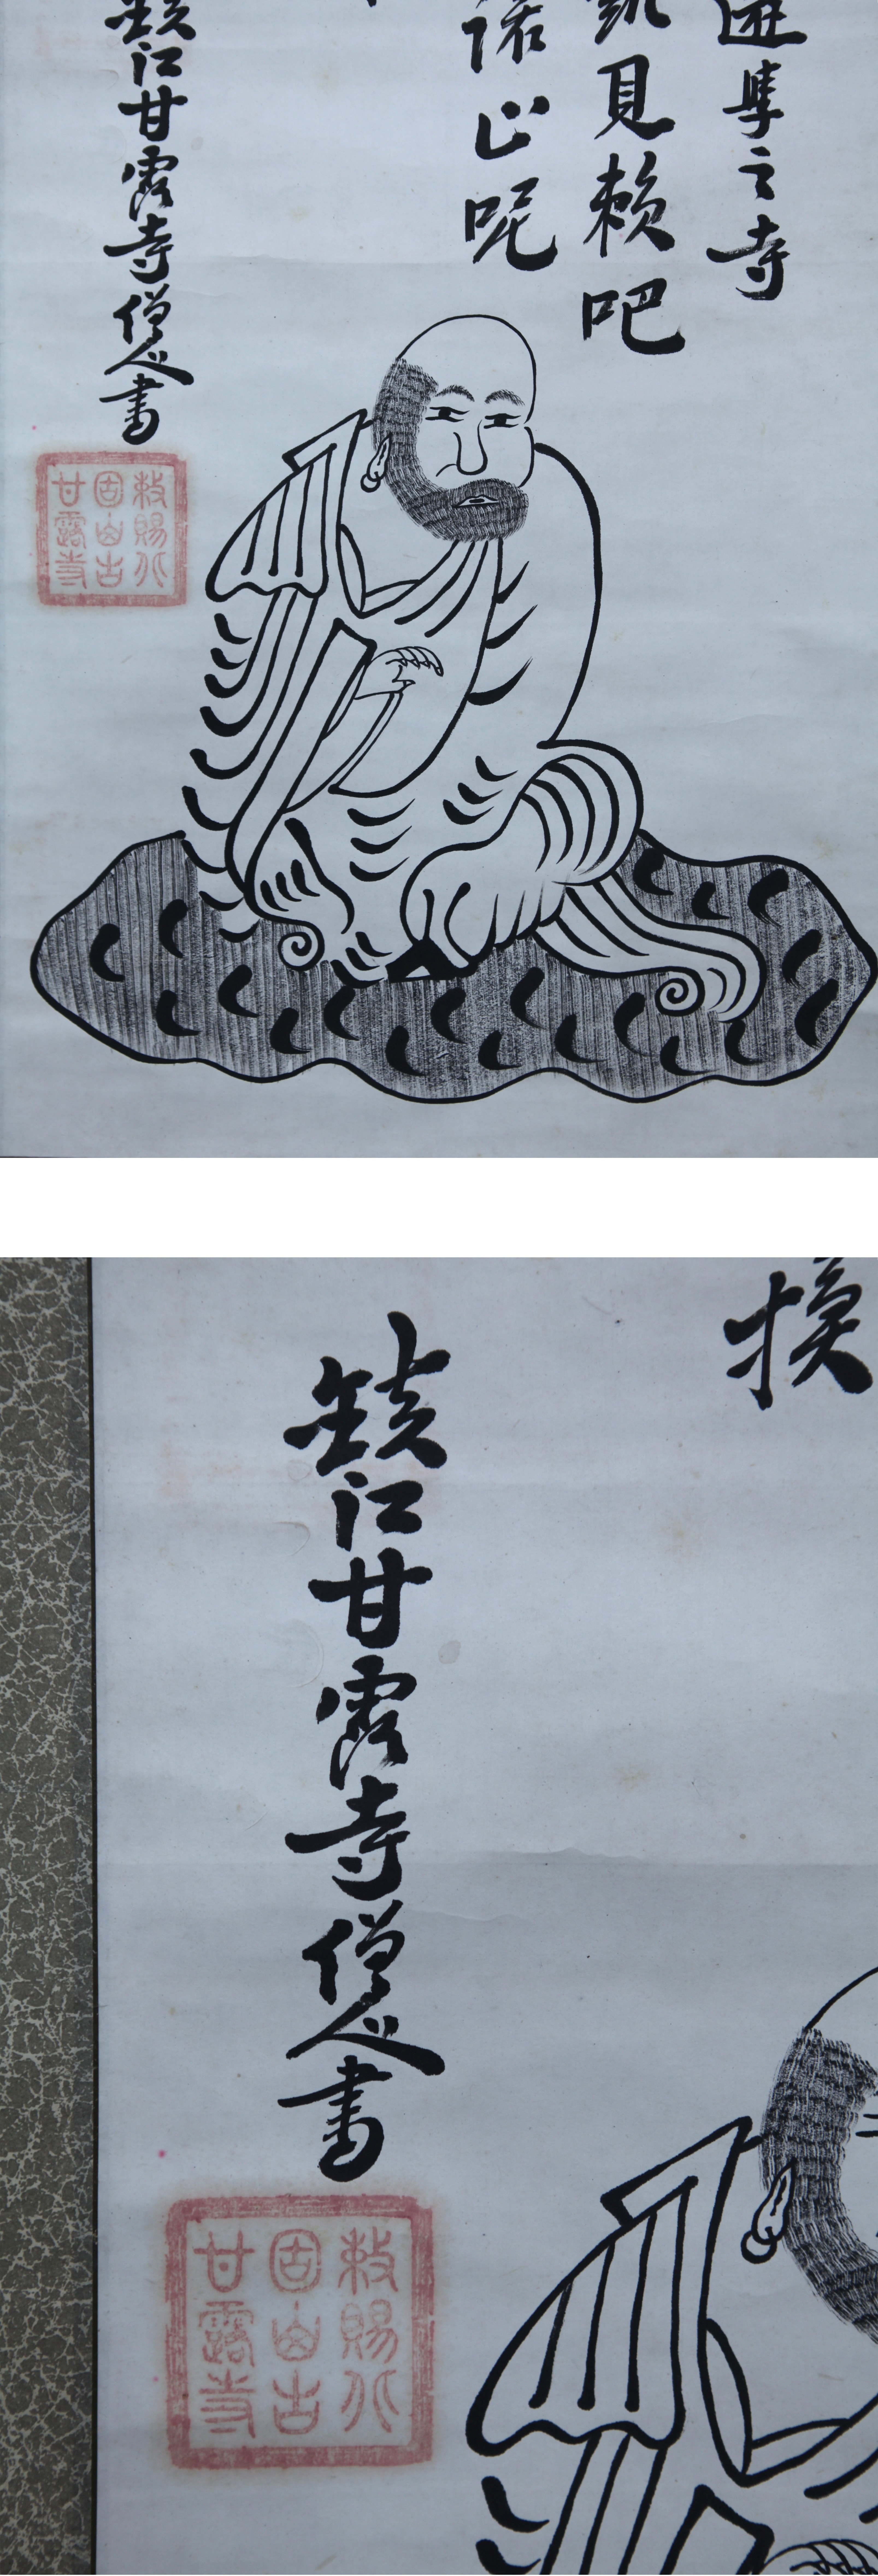 之寺
見賴吧
呢
鎮江甘露寺僧人書
敕賜北
固山古
甘露寺
換
鎮江甘露寺僧人書
敕賜北
固山古
甘露寺